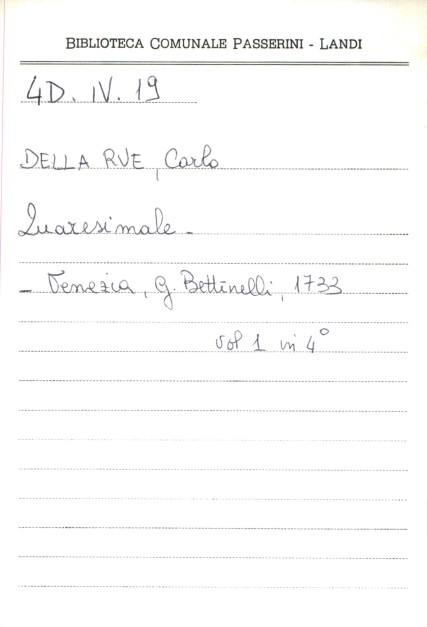 BIBLIOTECA COMUNALE PASSERINI - LANDI
4D. IV. 19
DELLA RUE, Carlo
Quaresimale -
- Venezia, G. Bettinelli, 1733
vol 1 in 4°